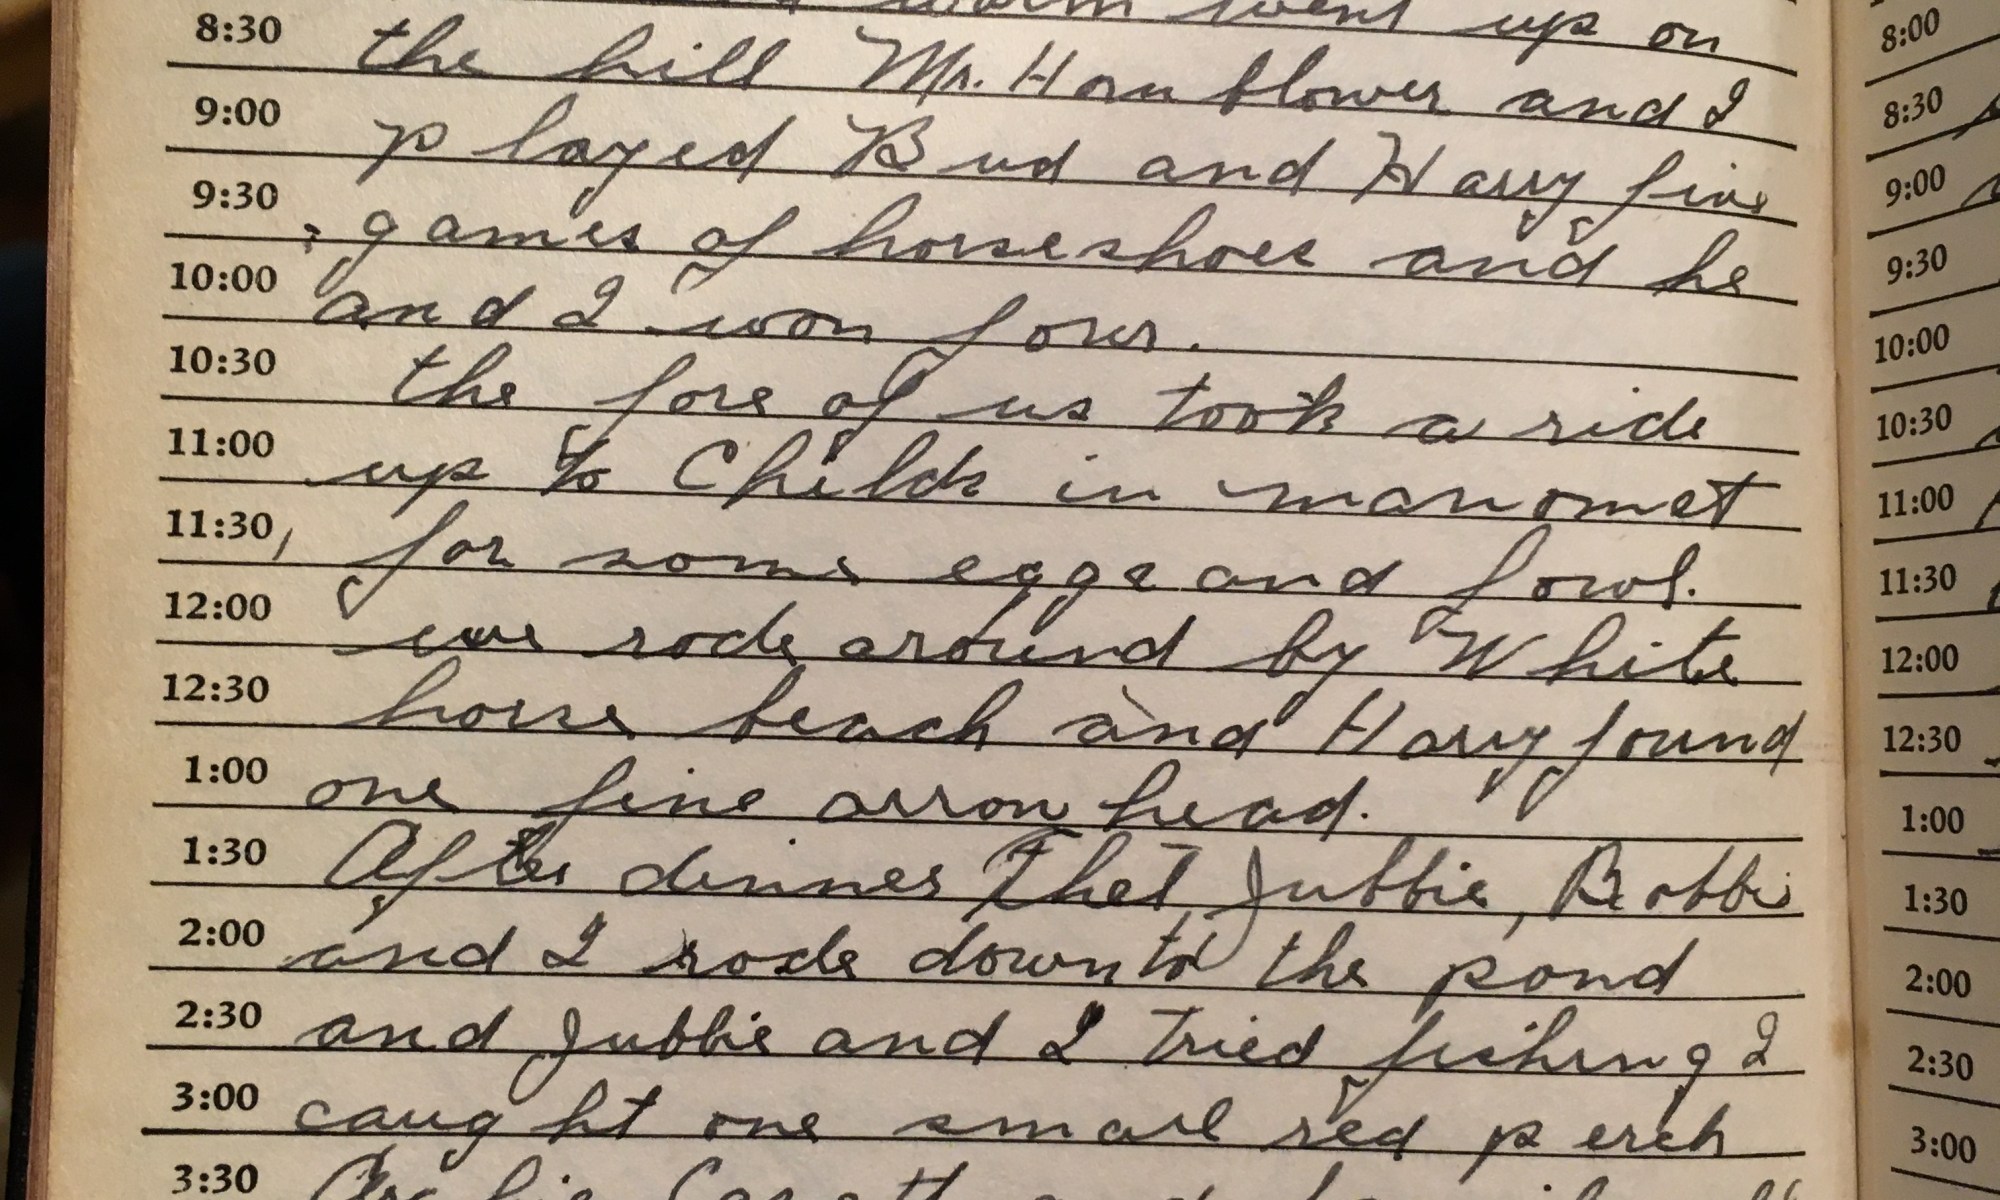 warm went up on
8:30 the hill Mr. Hornblower and I
9:00 played Bud and Harry five
9:30 games of horseshoes and he
10:00 and I won four.
10:30 the fore of us took a ride
11:00 up to Childs in manomet
11:30 for some eggs and fowl.
12:00 we rode around by White
12:30 horse beach and Harry found
1:00 one fine arrow head.
1:30 After dinner Thel, Jubbie, Bobbi
2:00 and I rode down to the pond
2:30 and Jubbie and I tried fishing I
3:00 caught one small red perch
3:30
8:00
8:30
9:00
9:30
10:00
10:30
11:00
11:30
12:00
12:30
1:00
1:30
2:00
2:30
3:00